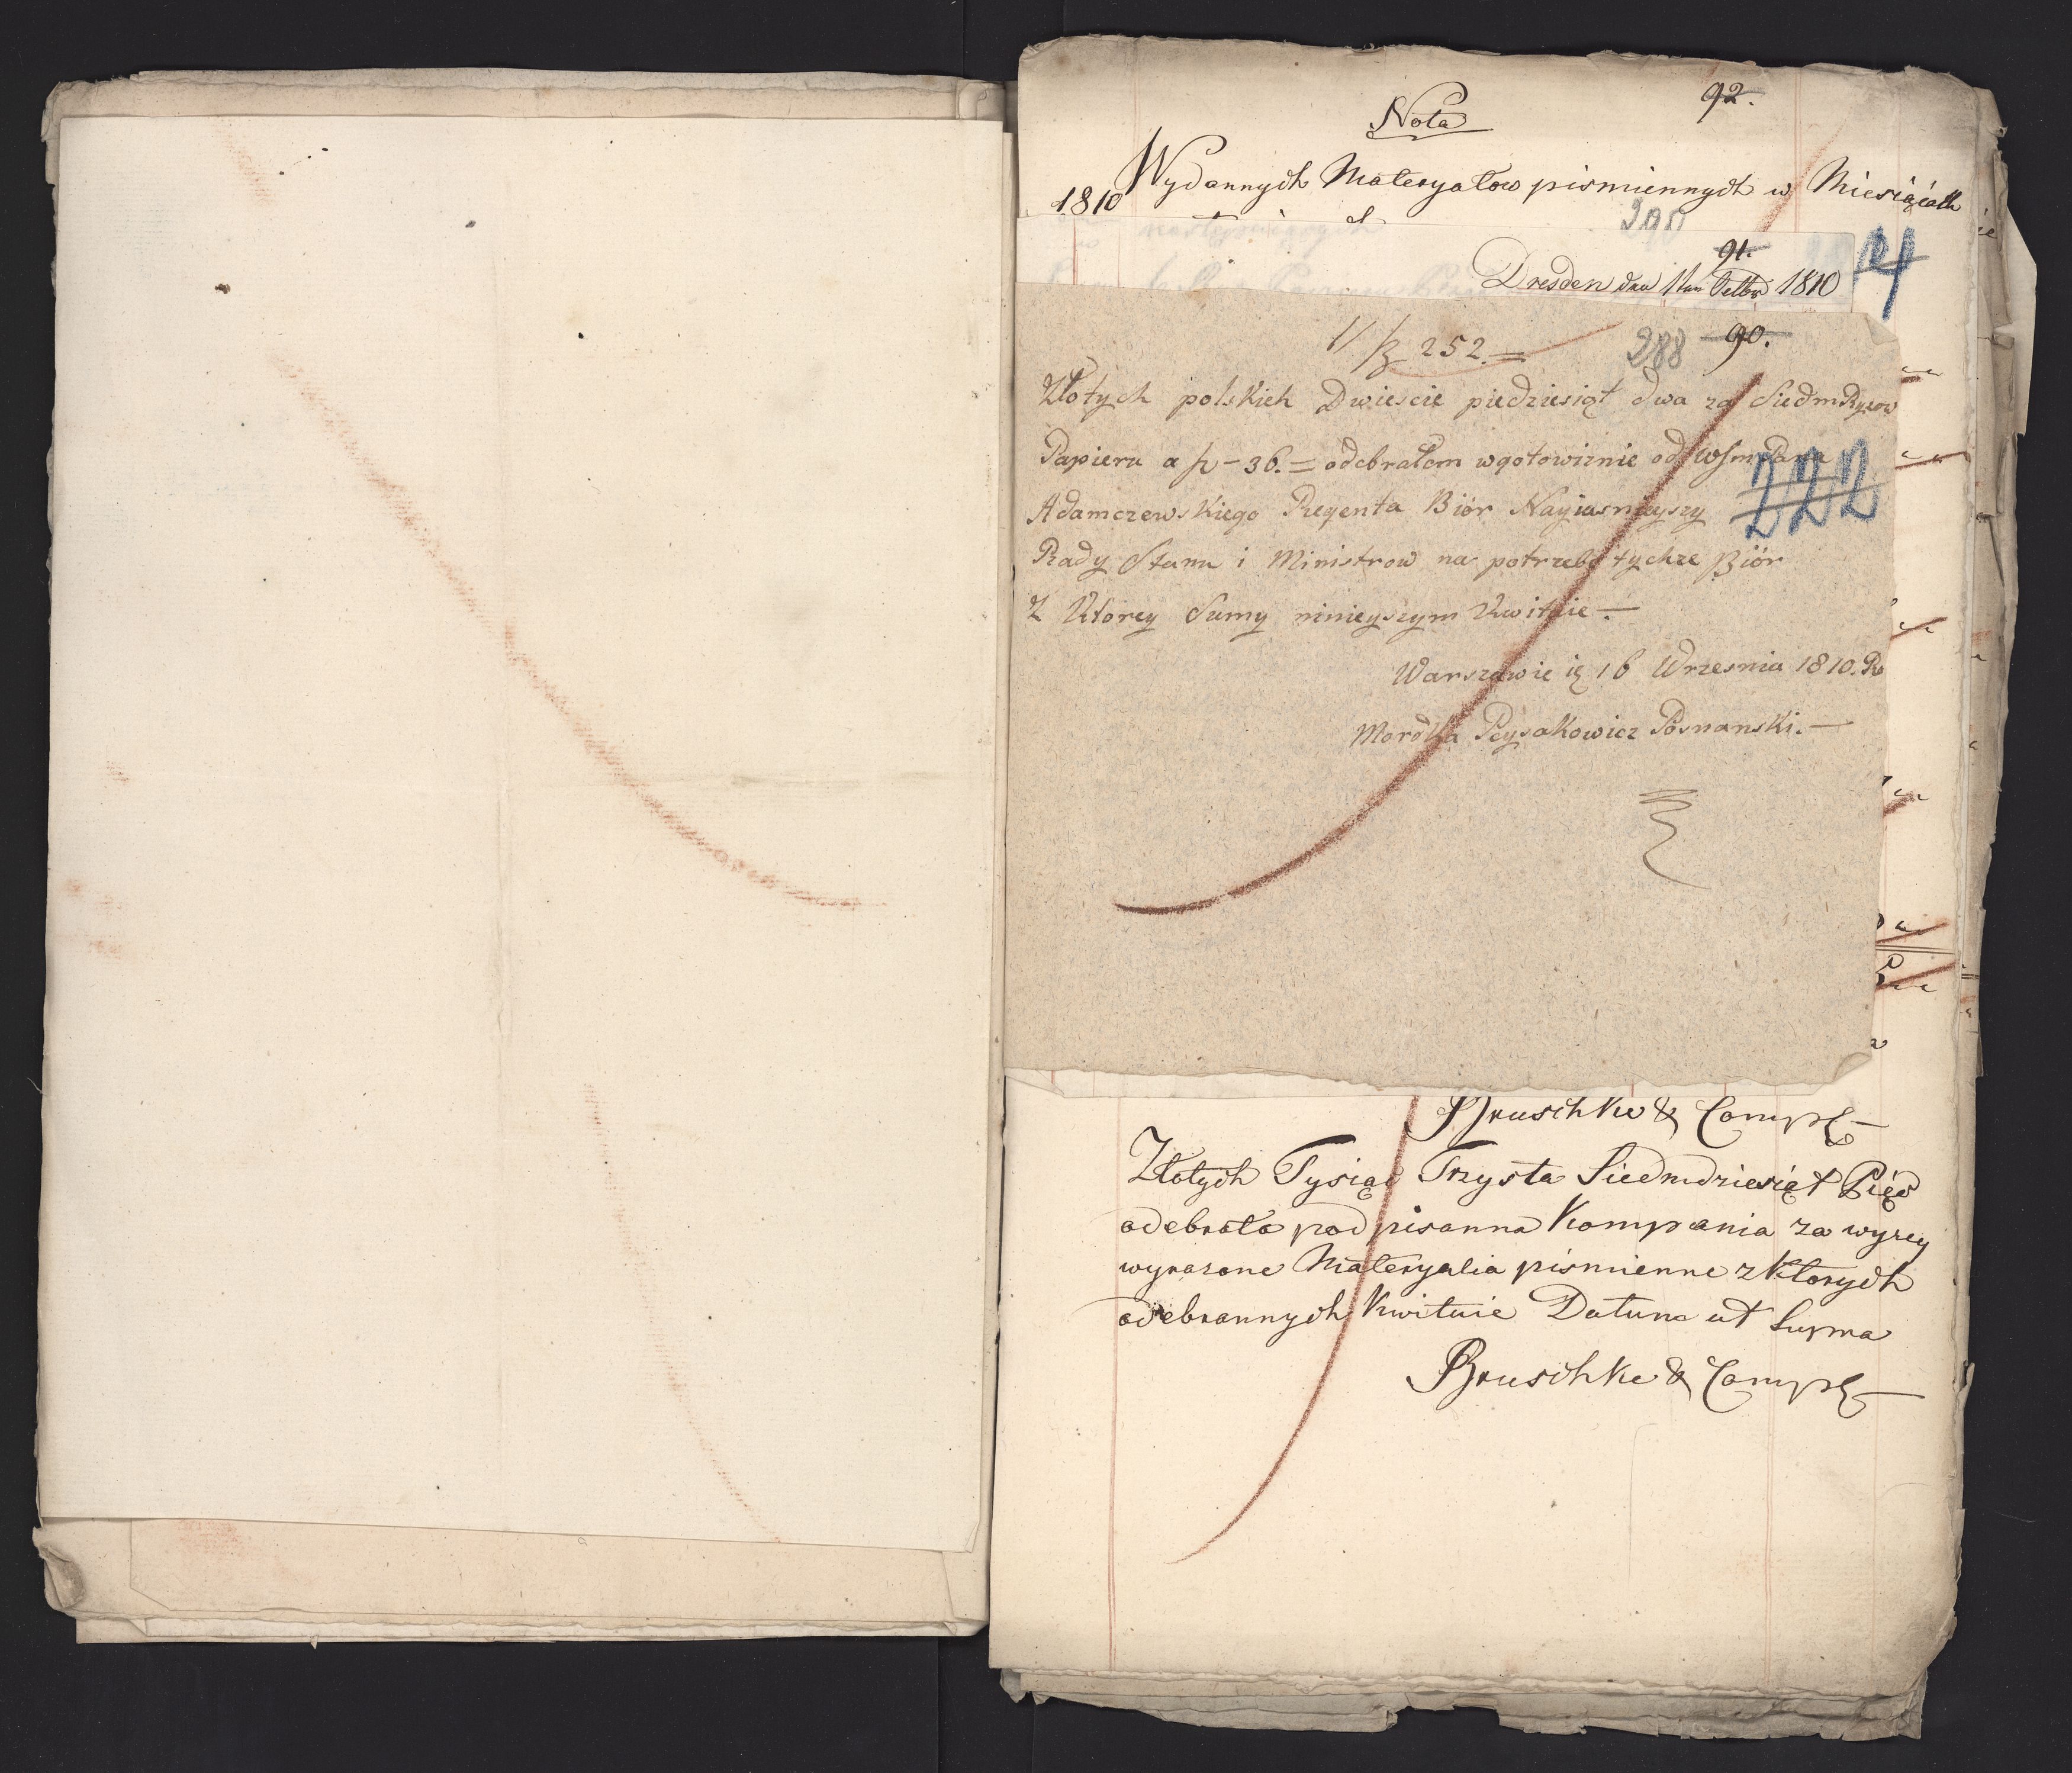 92.
Nota
Wydannych Materyałow pismiennych w Miesiącach
1810
290
91.
Dresden den 11ten 1810
288 90.
252.=
Złotych polskich Dwieście piedziesiąt dwa za Siedm Ryzow
Papieru a fl - 36.= odebrałem w gotowiznie od
222
Adamczewskiego Regenta Biór Nayiasnieyszy
Rady Stanu i Ministrow na potrzebę tychże Biór
Z Którey Sumy ninieyszym Kwituie.—
Warszawie ię 16 Wrzesnia 1810. Ro
Mordka Peysakowicz Posnanski.—
Bruschke & Comp
Złotych Tysiąc Trzysta Siedmdziesiąt Pięć
odebrała podpisanna Kompania za wyzey
wyrazone Materyalia pismienne z Ktorych
odebrannych Kwituie Datum ut Supra
Bruschke & Comp